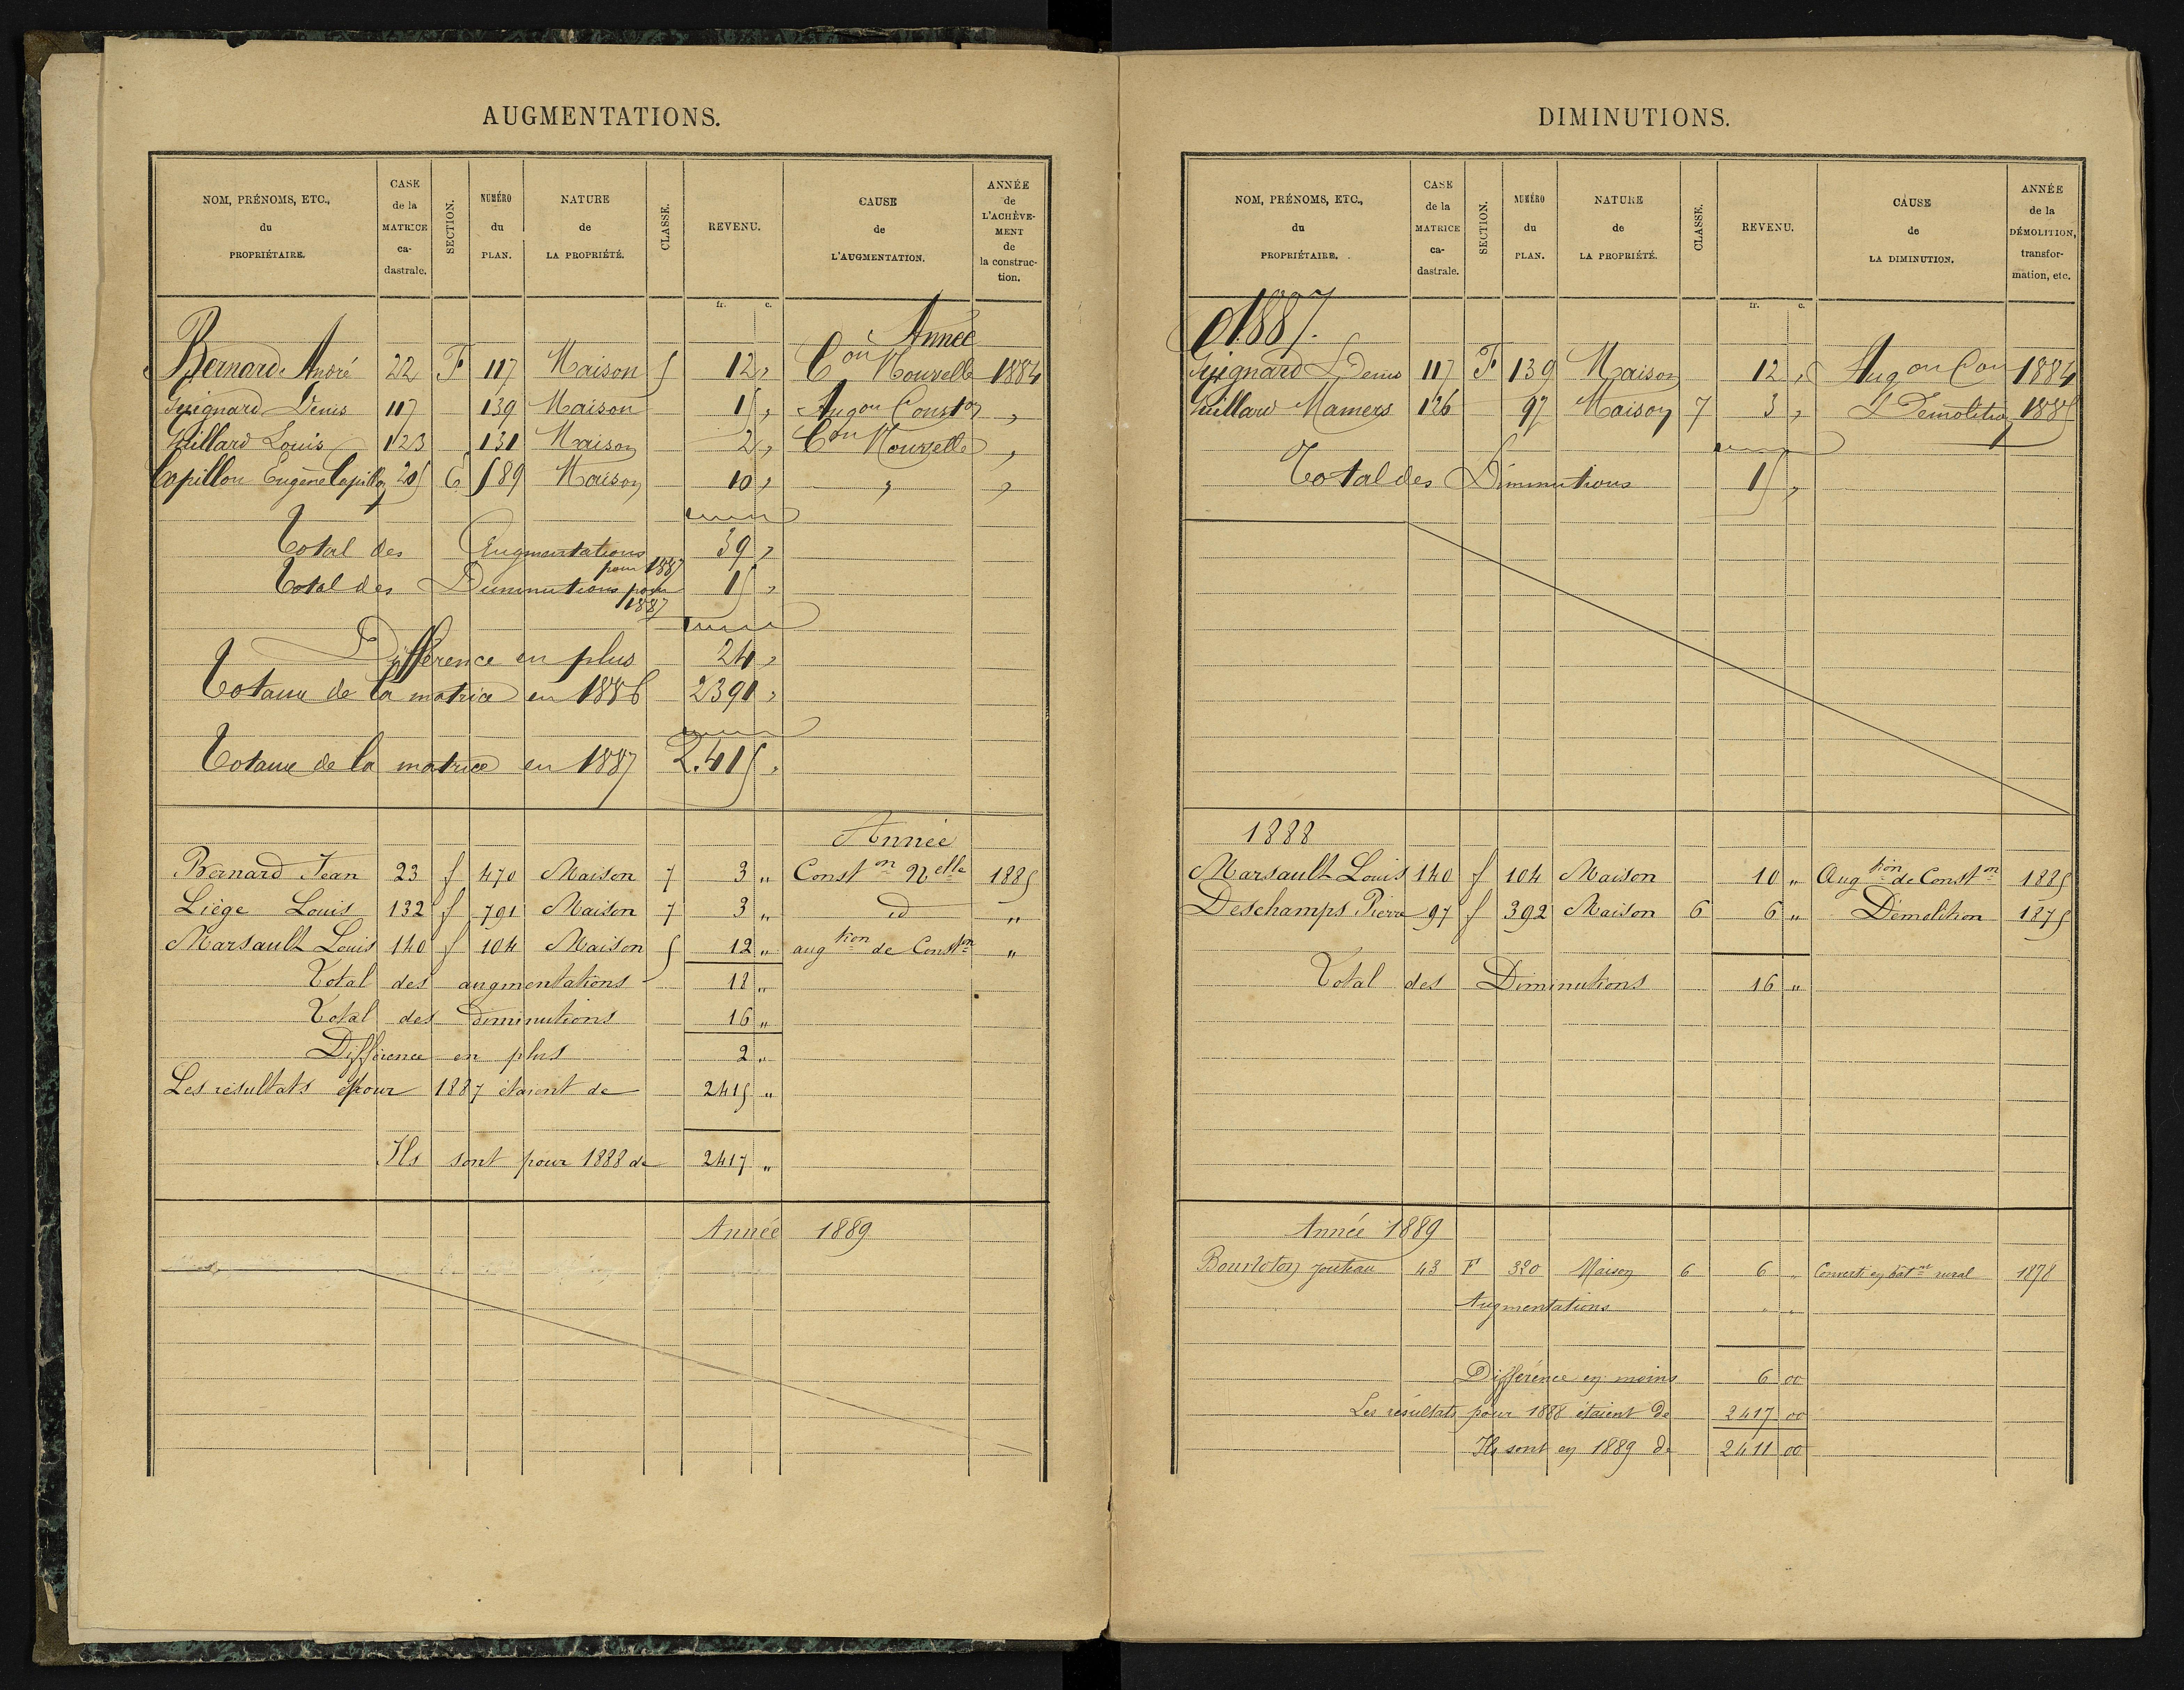 AUGMENTATIONS.
NOM, PRÉNOMS, ETC., du PROPRIÉTAIRE. CASE de la MATRICE ca-dastrale. SECTION. NUMÉRO du PLAN. NATURE de LA PROPRIÉTÉ. CLASSE. REVENU. CAUSE de L'AUGMENTATION. ANNÉE de L'ACHÈVE-MENT de la construc-tion.
fr. c.
Année
Bernard André 22 F 117 Maison 5 12 " Con Nouvelle 1884
Guignard Denis 117 139 Maison 15 " Augon Conston "
Juillard Louis 123 131 Maison 2 " Con Nouvelle "
Capillon Eugène Capillon 205 C 589 Maison 10 " " "
Total des Augmentations pour 1887 39 "
Total des Diminutions pour 1887 15 "
Différence en plus 24 "
Totaux de la matrice en 1886 2391 "
Totaux de la matrice en 1887 2.415 "
Année
Bernard Jean 23 f 470 Maison 7 3 " Conston Nelle 1885
Liège Louis 132 f 791 Maison 7 3 " id "
Marsault Louis 140 f 104 Maison 5 12 " augtion de Conston "
Total des augmentations 18 "
Total des diminutions 16 "
Différence en plus 2 "
Les résultats pour 1887 étaient de 2415 "
Ils sont pour 1888 de 2417 "
Année 1889
DIMINUTIONS.
NOM, PRÉNOMS, ETC., du PROPRIÉTAIRE. CASE de la MATRICE ca-dastrale. SECTION. NUMÉRO du PLAN. NATURE de LA PROPRIÉTÉ. CLASSE. REVENU. CAUSE de LA DIMINUTION. ANNÉE de la DÉMOLITION, transfor-mation, etc.
fr. c.
1887.
Guignard Denis 117 F 139 Maison 12 " Augon Con 1884
Juillard Mamers 126 97 Maison 7 3 " Démolition 1885
Total des Diminutions 15 "
1888
Marsault Louis 140 f 104 Maison 10 " Augtion de Conston 1885
Deschamps Pierre 97 f 392 Maison 6 6 " Démolition 1875
Total des Diminutions 16 "
Année 1889
Bourloton 43 F 320 Maison 6 6 " Converti en bâtnt rural 1878
Augmentations " "
Différence en moins 6 00
Les résultats pour 1888 étaient de 2417 00
Ils sont en 1889 de 2411 00